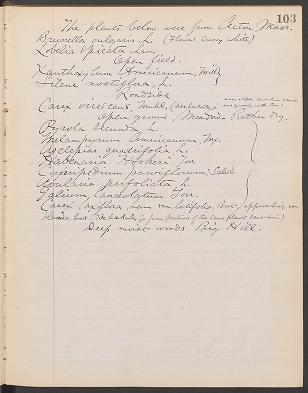 103
The plants below were from Acton, Mass.
Brunella vulgaris L. (Flowers ivory white)
Lobelia spicata Lam.
Open field.
Xanthoxylum Americanum, Mill.
Silene noctiflora, L.
Roadside
Carex virescens Muhl.
Open ground. Meadow rather dry.
Pyrola secunda L.
Melampyrum Americanum, Mx.
Asclepias quadrifolia L.
Habenaria Hookeri Torr
Cypripedium parviflorum, Salisb.
Uvularia perfoliata L.
Galium lanceolatum Torr.
Carex laxiflora Lam var. latifolia, Boott approaching var
Deep moist woods Big Hill.